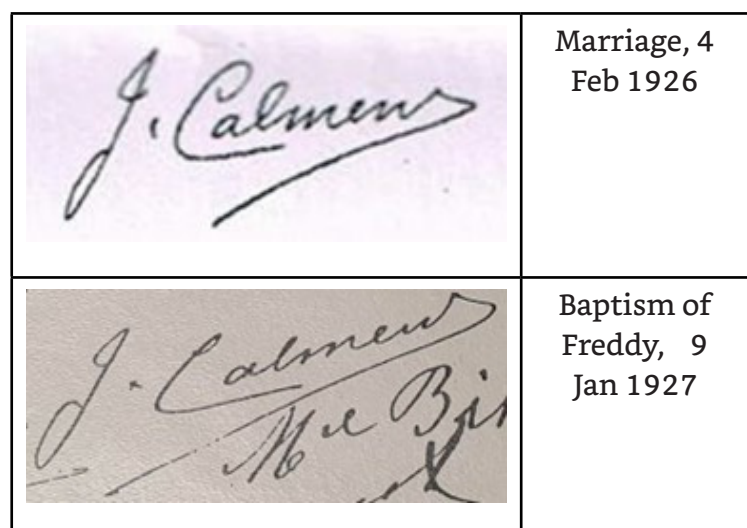 J. Calmens
Marriage, 4
Feb 1926
J. Calmens
Baptism of
Freddy, 9
Jan 1927